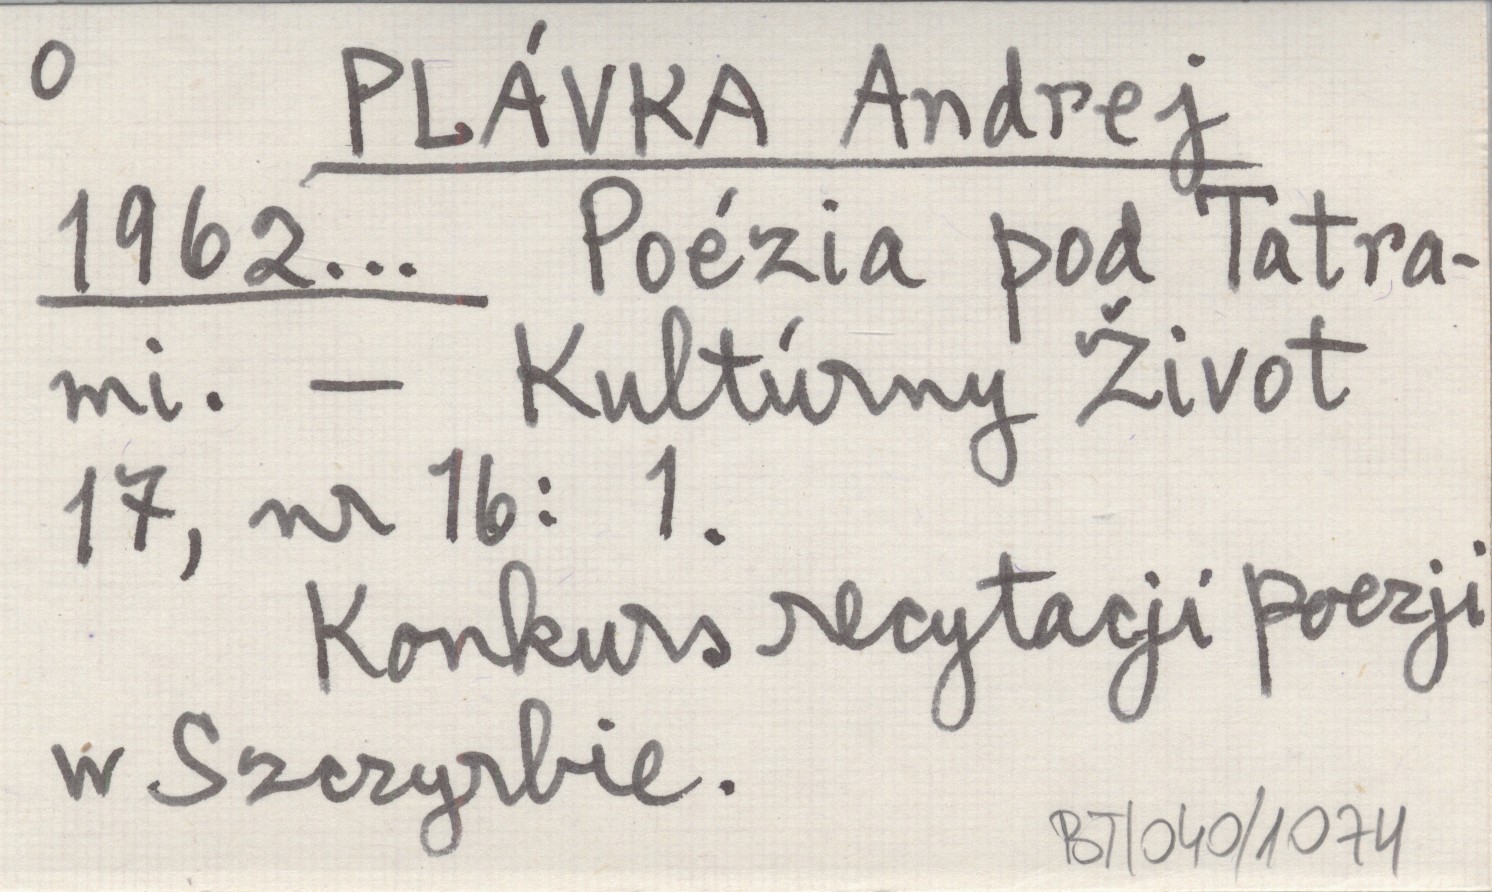 O
PLÁVKA Andrej
1962... Poézia pod Tatra-
mi. — Kultúrny Život
17, nr 16: 1.
Konkurs recytacji poezji
w Szczyrbie.
BT/040/1074